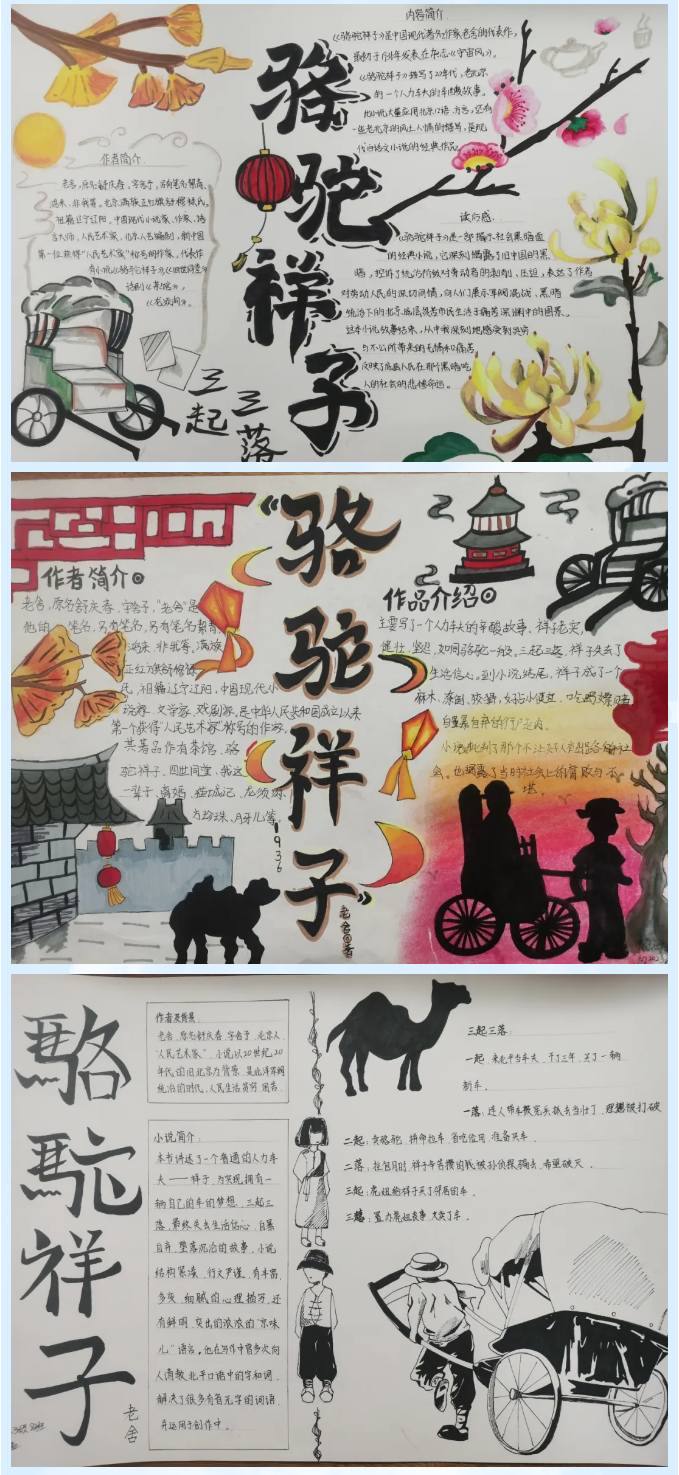 骆驼祥子
三起三落
作者简介
老舍,原名舒庆春,字舍予,另有笔名絜青、
鸿来、非我等。北京满族正红旗舒穆禄氏。
祖籍辽宁辽阳,中国现代小说家、作家、语
言大师、人民艺术家、北京人艺编剧,新中国
第一位获得“人民艺术家”称号的作家。代表作
有小说《骆驼祥子》,《四世同堂》
话剧《茶馆》,
《龙须沟》。
内容简介
《骆驼祥子》是中国现代著名作家老舍的代表作,
《骆驼祥子》描写了20年代,老北京
的一个人力车夫的辛酸故事。
此小说大量应用北京口语、方言,还有
一些老北京的风土人情的描写,是现
代白话文小说的经典作品
读后感:
《骆驼祥子》是一部揭示社会黑暗面
的经典小说,它深刻揭露了旧中国的黑
暗,控诉了统治阶级对劳动者的剥削、压迫,表达了作者
对劳动人民的深切同情,向人们展示军阀混战、黑暗
统治下的北京底层贫苦市民生活于痛苦深渊中的图景。
这本小说故事结束,从中我深刻地感受到贫穷
与不公所带来的无情和痛苦
反映了底层人民在那个黑暗吃
人的社会的悲惨命运。
“骆驼祥子”
1936
老舍◎著
作者简介
老舍,原名舒庆春,字舍予,“老舍”是
他的 笔名,另有笔名,另有笔名絜青、
鸿来、非我等。满族
正红旗舒穆禄
氏,祖籍辽宁辽阳,中国现代小
说家、文学家、戏剧家,是中华人民共和国成立以来
第一个获得“人民艺术家”称号的作家,
其著品作有茶馆、骆
驼祥子、四世同堂、我这
一辈子、猫城记、龙须沟、
方珍珠、月牙儿等。
作品介绍
主要写了一个人力车夫的辛酸故事。祥子老实,
健壮,坚忍,如同骆驼一般。三起三落,祥子失去了
生活信心,到小说结尾,祥子成了一个
麻木、潦倒、狡猾,好占小便宜、吃喝嫖赌
自暴自弃的行尸走肉。
小说批判了那个不让好人有出路的社
会。也揭露了当时社会上的腐败与不
堪。
骆驼祥子
老舍
作者及背景
老舍,原名舒庆春,字舍予,北京人
“人民艺术家”。小说以20世纪20
年代的旧北京为背景,是北洋军阀
统治的时代,人民生活贫穷、困苦
小说简介:
本书讲述了一个普通的人力车
夫——祥子,为实现拥有一
辆自己的车的梦想,三起三
落,最终失去生活信心,自暴
自弃,堕落沉沦的故事。小说
结构紧凑,行文严谨,有丰富、
多变、细腻的心理描写,还
有鲜明、突出的浓浓的“京味
儿”语言。他在写作中曾多次向
人请教北平口语中的字和词,
解决了很多有音无字的词语,
并运用于创作中。
三起三落:
一起:来北平当车夫,干了三年,买了一辆
新车。
一落:连人带车被宪兵抓去当壮丁,理想被打破
二起:卖骆驼,拼命拉车,省吃俭用,准备买车。
二落:拉包月时,祥子辛苦攒的钱被孙侦探骗去,希望破灭。
三起:虎妞给祥子买了邻居的车。
三落:置办虎妞丧事,又卖了车。